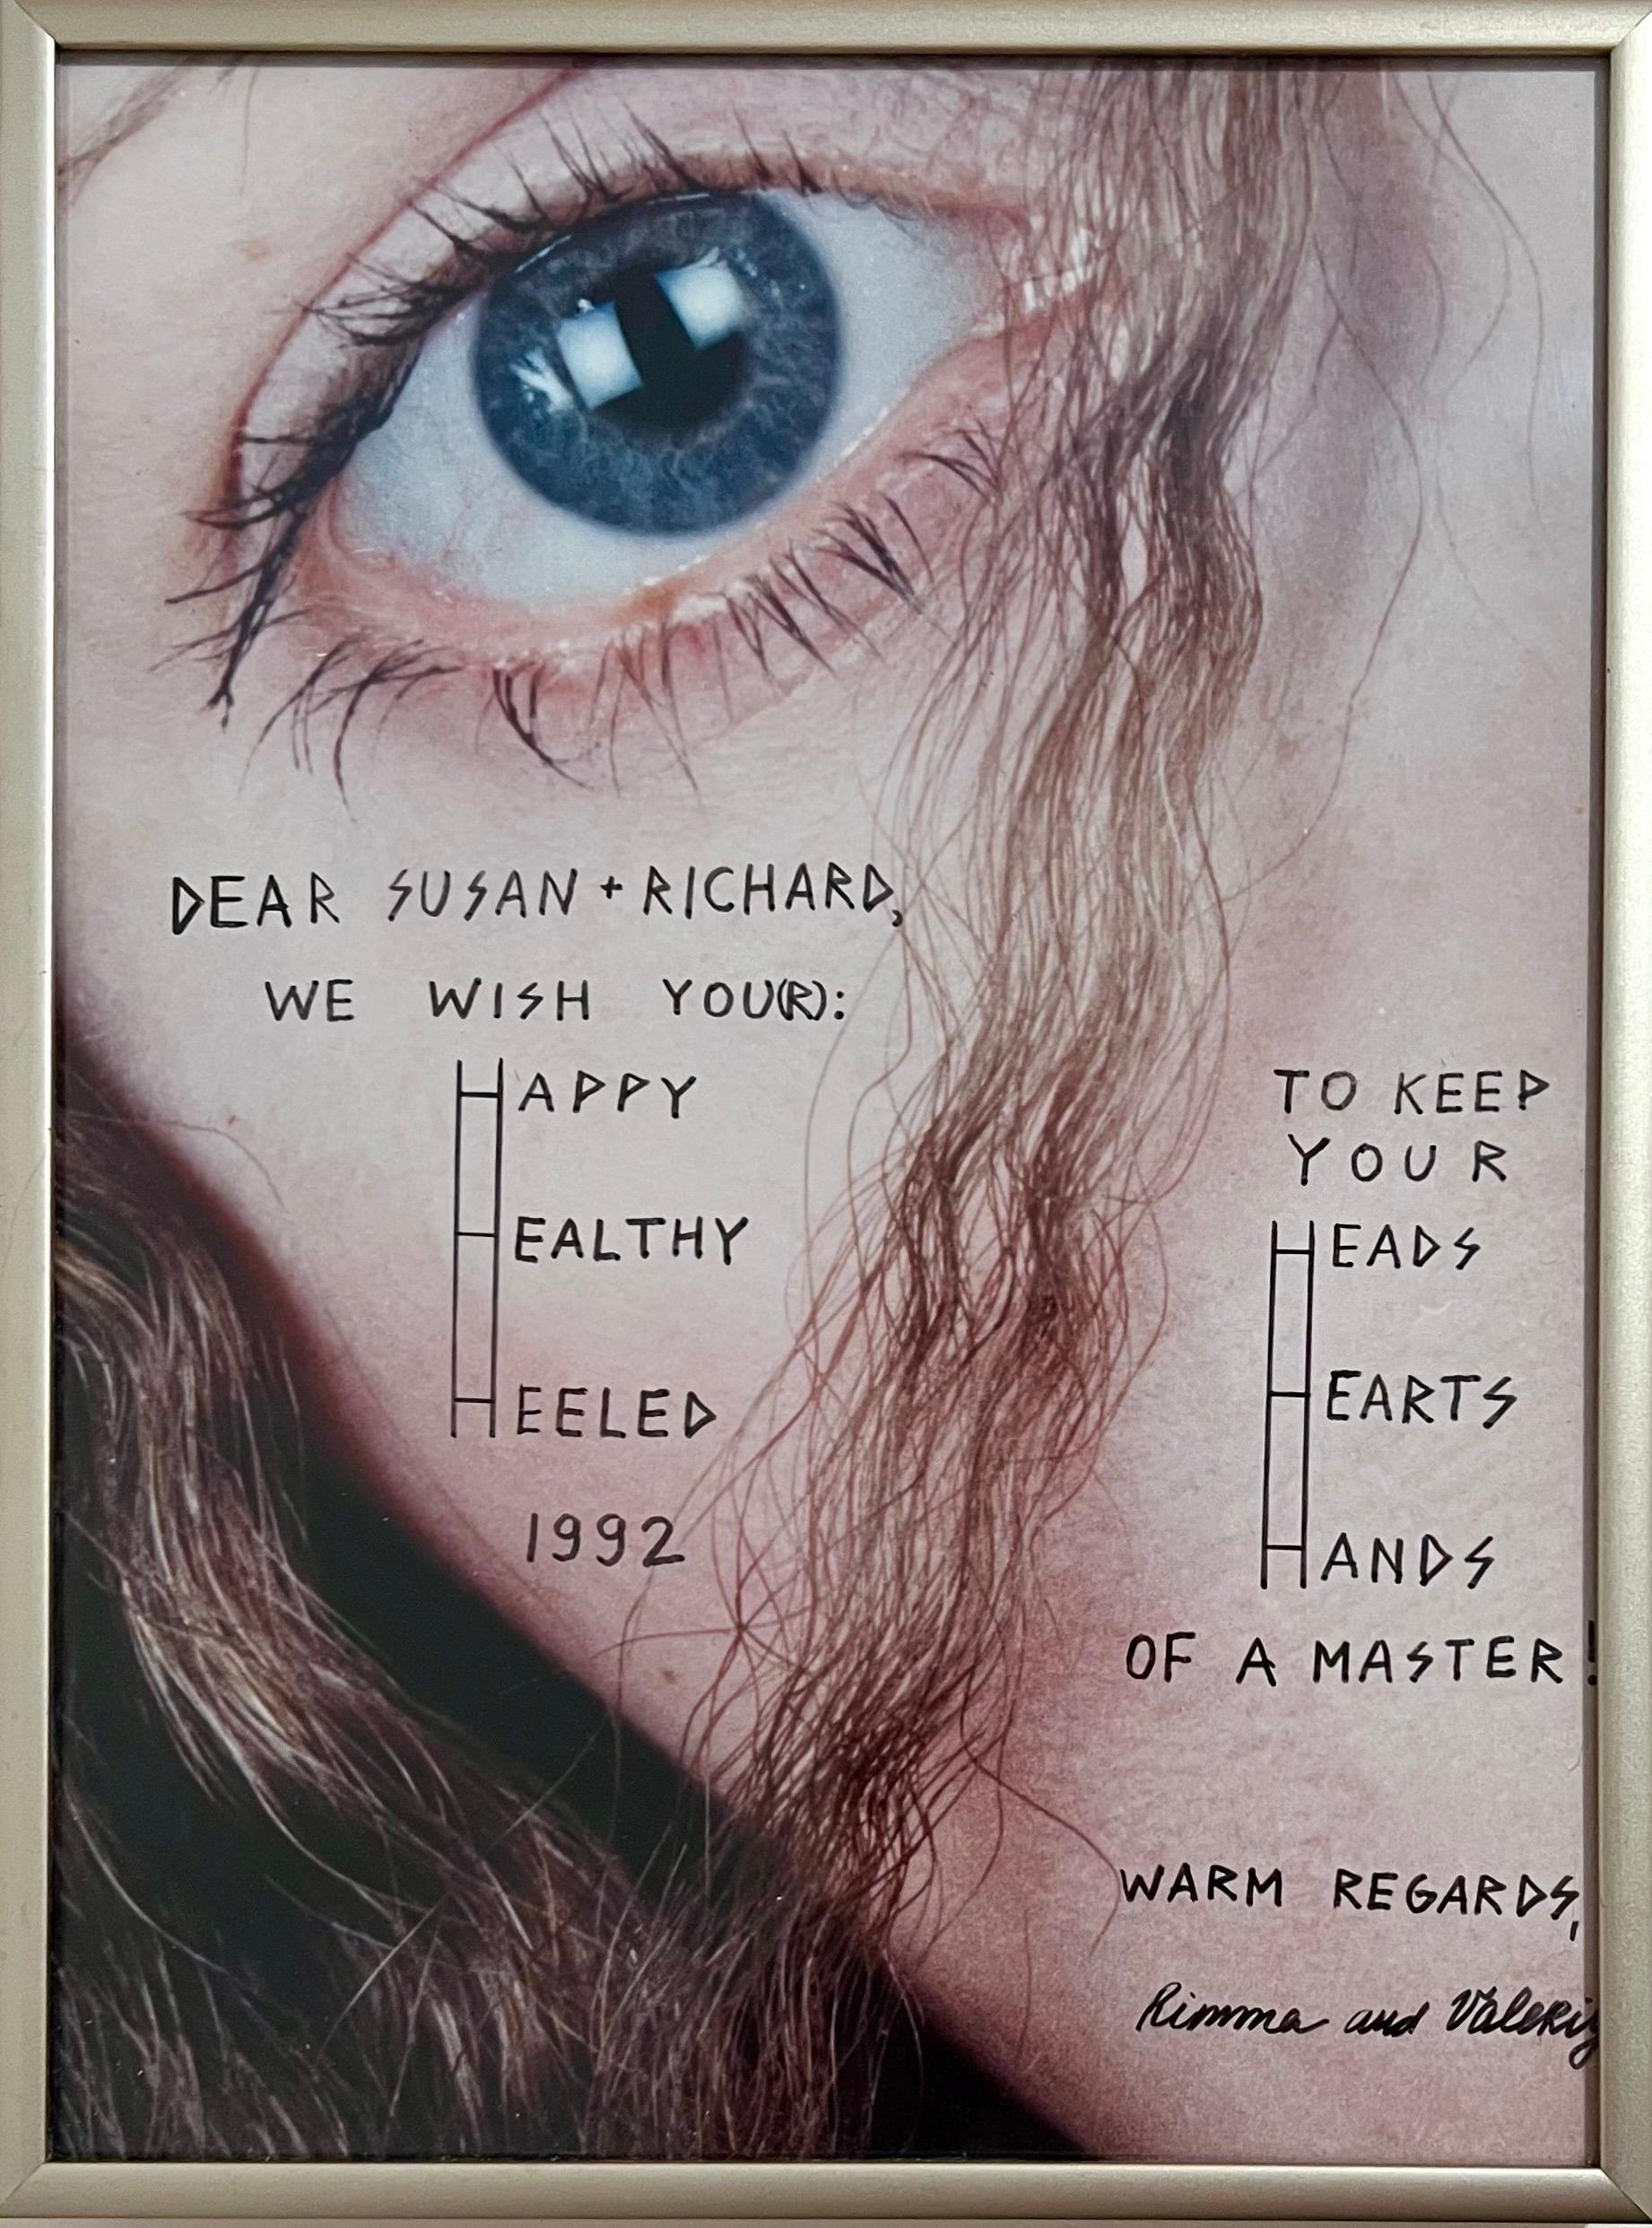 DEAR SUSAN + RICHARD,
WE WISH YOU(R):
HAPPY
HEALTHY
HEELED
1992
TO KEEP
YOUR
HEADS
HEARTS
HANDS
OF A MASTER!
WARM REGARDS,
Rimma and Valeriy